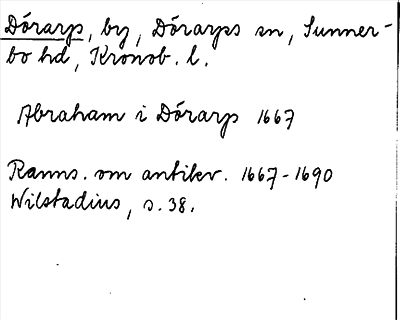 Dórarp, by, Dóraps sn, Sunner-
bo hd, Kronob. l.
Abraham i Dórarp 1667
Ranns. om antikv. 1667-1690
Wilstadius, s. 38.